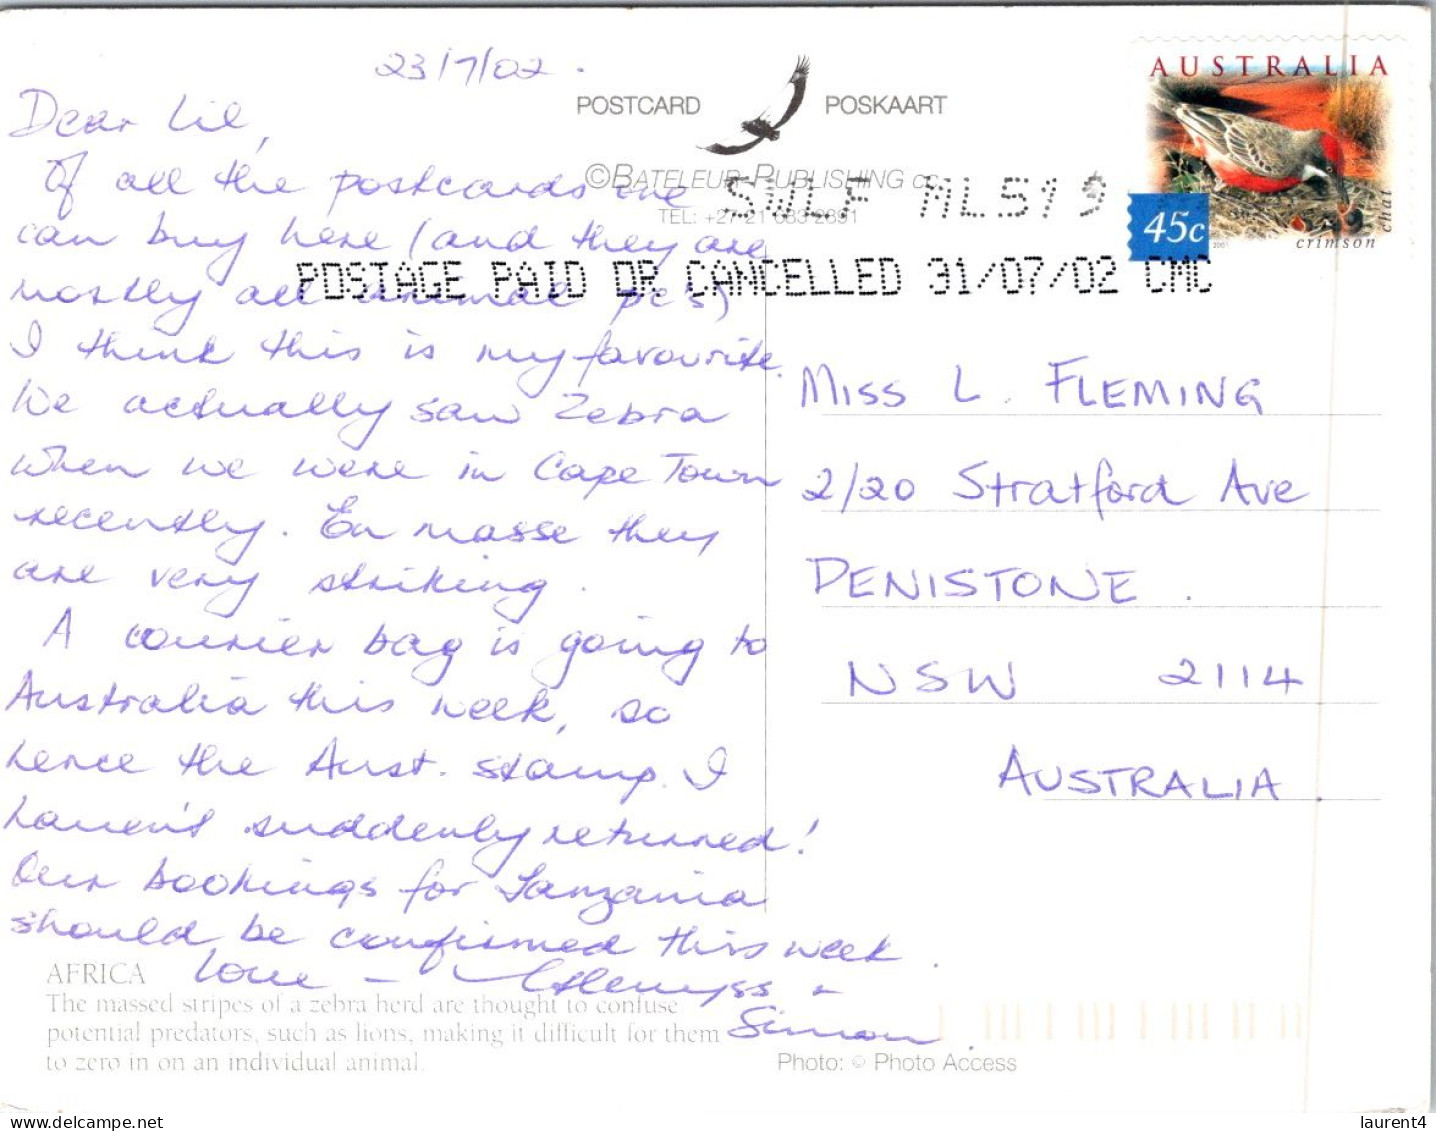 23/7/02.
POSTCARD POSKAART
©BATELEUR PUBLISHING cc
TEL: +27-21 683 2891
SWLF ML519
POSTAGE PAID OR CANCELLED 31/07/02 CMC
AUSTRALIA
45c
2001
crimson chat
Dear Lil,
Of all the postcards one
can buy here (and they are
mostly all animal pc's)
I think this is my favourite.
We actually saw Zebra
when we were in Cape Town
recently. En masse they
are very striking.
A courier bag is going to
Australia this week, so
hence the Aust. stamp. I
haven't suddenly returned!
Our bookings for Tanzania
should be confirmed this week.
Love -
Simon.
Miss L. FLEMING
2/20 Stratford Ave
DENISTONE.
NSW 2114
AUSTRALIA
AFRICA
The massed stripes of a zebra herd are thought to confuse
potential predators, such as lions, making it difficult for them
to zero in on an individual animal.
Photo: © Photo Access
www.delcampe.net
laurent4